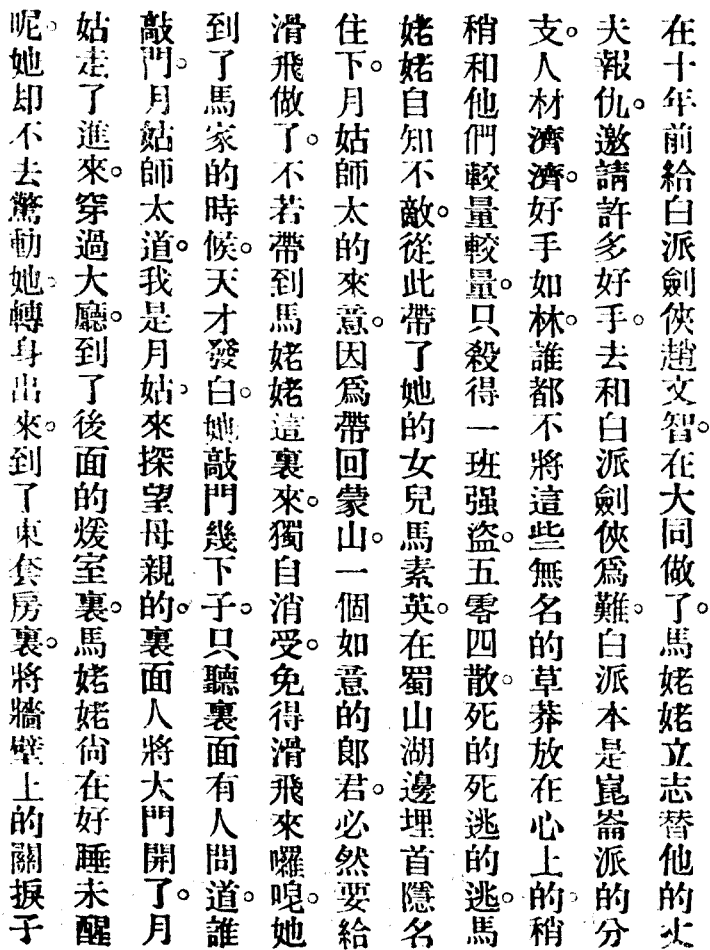 在十年前給白派劍俠趙文智。在大同做了。馬姥姥立志替他的丈
夫報仇。邀請許多好手。去和白派劍俠爲難。白派本是崑崙派的分
支。人材濟濟。好手如林。誰都不將這些無名的草莽放在心上的。稍
稍和他們較量較量。只殺得一班强盜。五零四散。死的死逃的逃。馬
姥姥自知不敵。從此帶了她的女兒馬素英。在蜀山湖邊埋首隱名
住下。月姑師太的來意。因爲帶回蒙山。一個如意的郎君。必然要給
滑飛做了。不若帶到馬姥姥這裏來。獨自消受。免得滑飛來囉唣。她
到了馬家的時候。天才發白。她敲門幾下子。只聽裏面有人問道。誰
敲門。月姑師太道。我是月姑。來探望母親的。裏面人將大門開了。月
姑走了進來。穿過大廳。到了後面的煖室裏。馬姥姥尙在好睡未醒
呢。她却不去驚動她。轉身出來。到了東套房裏。將牆壁上的關捩子